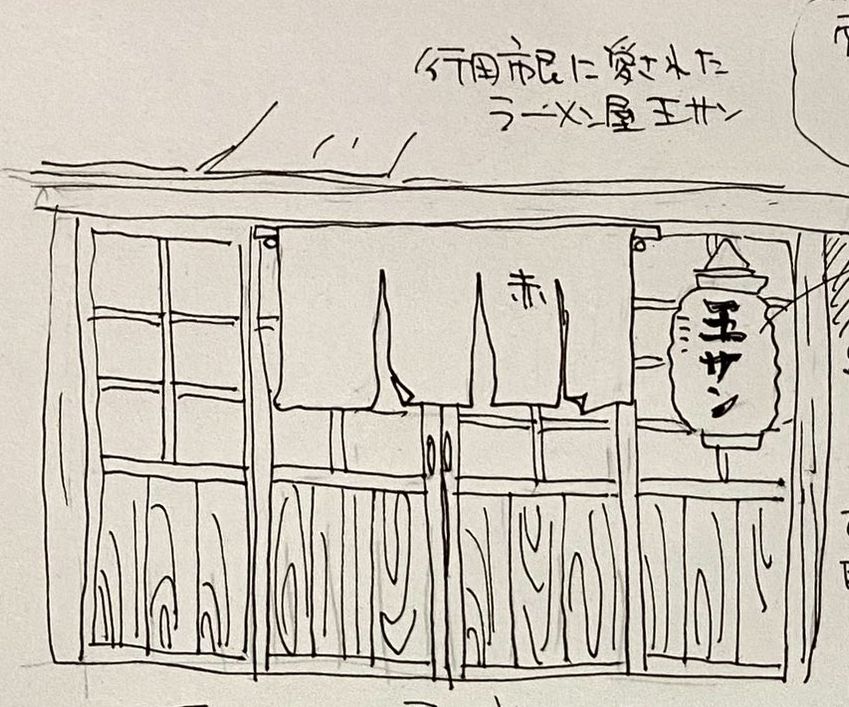 行田市民に愛された
ラーメン屋 王サン
赤
王サン